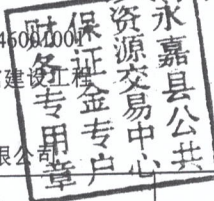 永嘉县公共
资源交易中心
保证金专户
财务专用章
建设工程
限公司